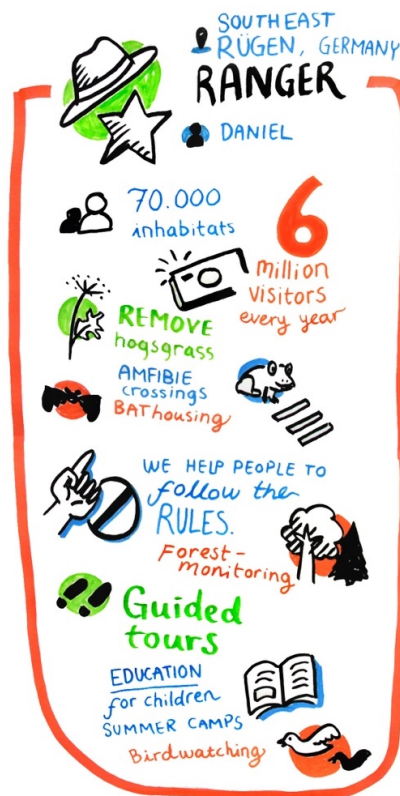 SOUTHEAST
RÜGEN, GERMANY
RANGER
DANIEL
70.000
inhabitats
6
million
visitors
every year
REMOVE
hogsgrass
AMFIBIE
crossings
BAT housing
WE HELP PEOPLE TO
follow the
RULES.
Forest-
monitoring
Guided
tours
EDUCATION
for children
SUMMER CAMPS
Birdwatching